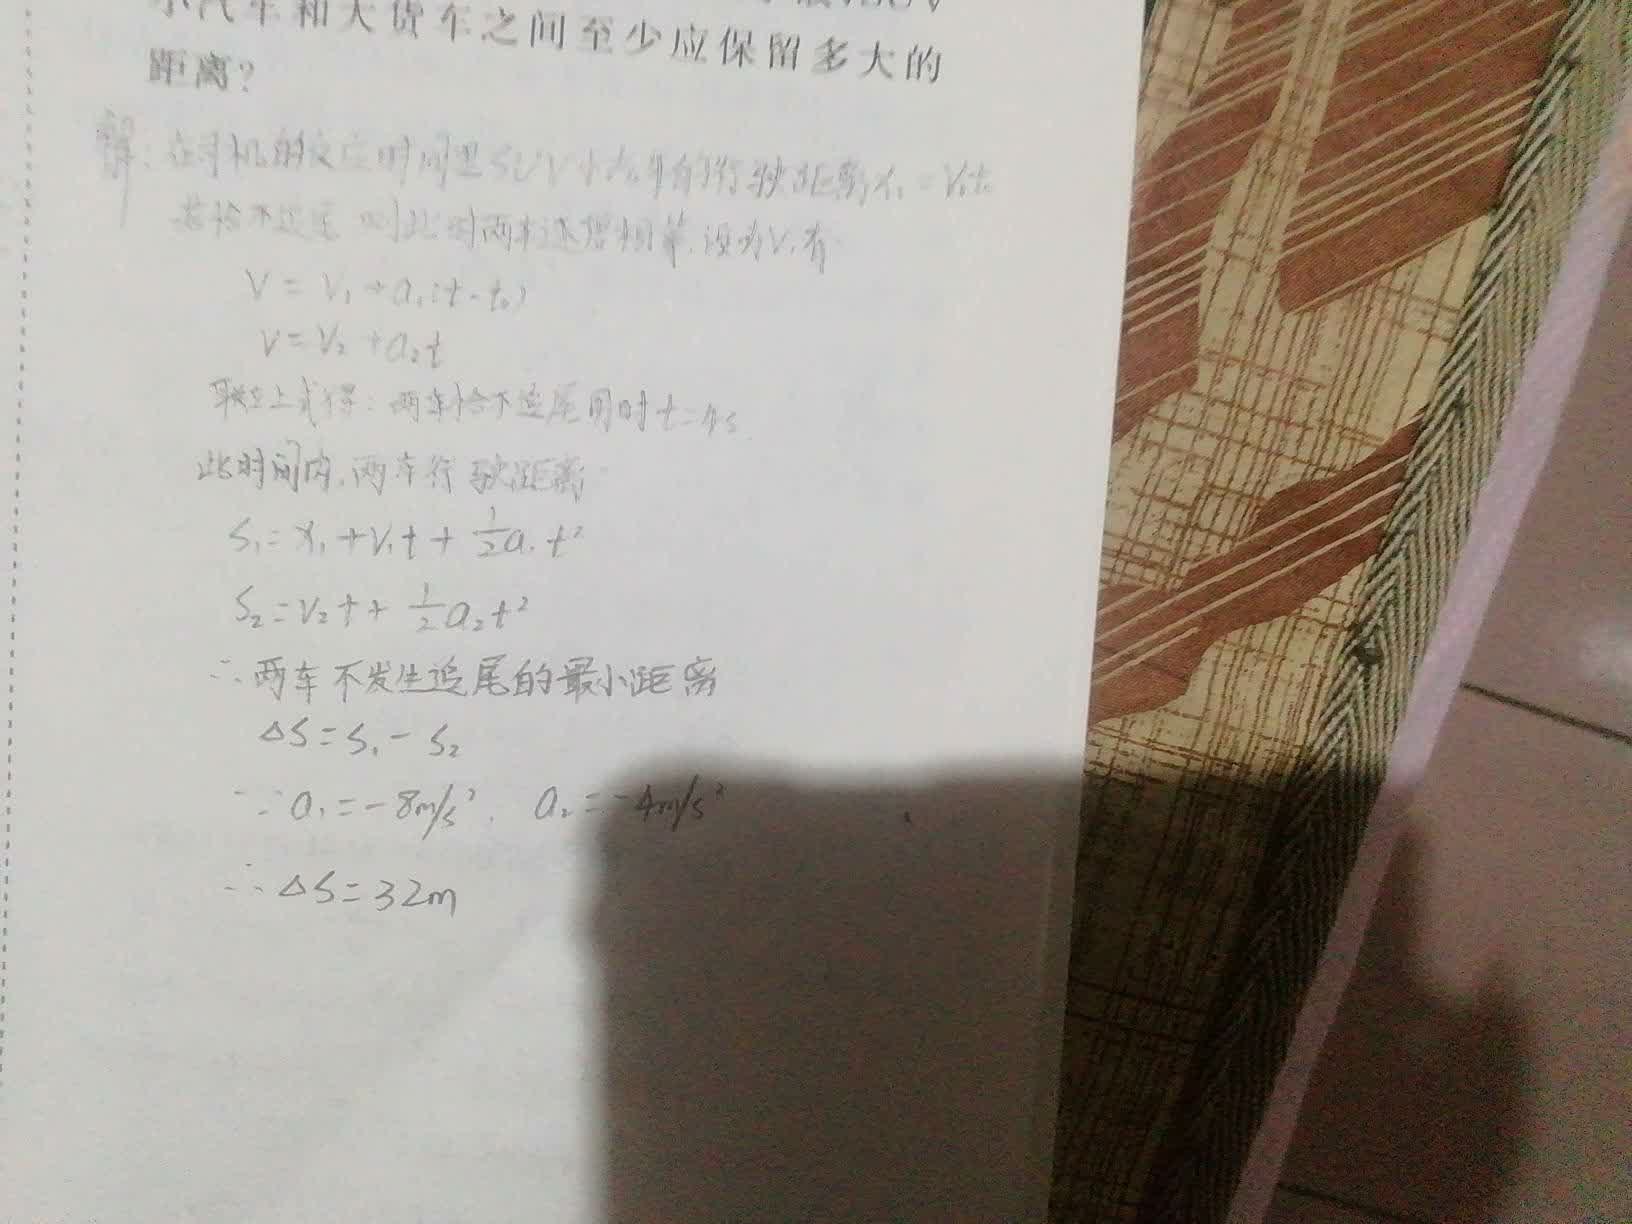 小汽车和大货车之间至少应保留多大的
距离?
解:在司机的反应时间里SUV小汽车的行驶距离x₁=V₁t₀
若恰不追尾,则此时两车速度相等,设为V,有
V=V₁+a₁(t-t₀)
V=V₂+a₂t
联立上式得:两车恰不追尾用时t=4s.
此时间内,两车行驶距离
S₁=x₁+V₁t+\frac{1}{2}a₁t²
S₂=V₂t+\frac{1}{2}a₂t²
∴两车不发生追尾的最小距离
△S=S₁-S₂
∵a₁=-8m/s², a₂=-4m/s²
∴△S=32m